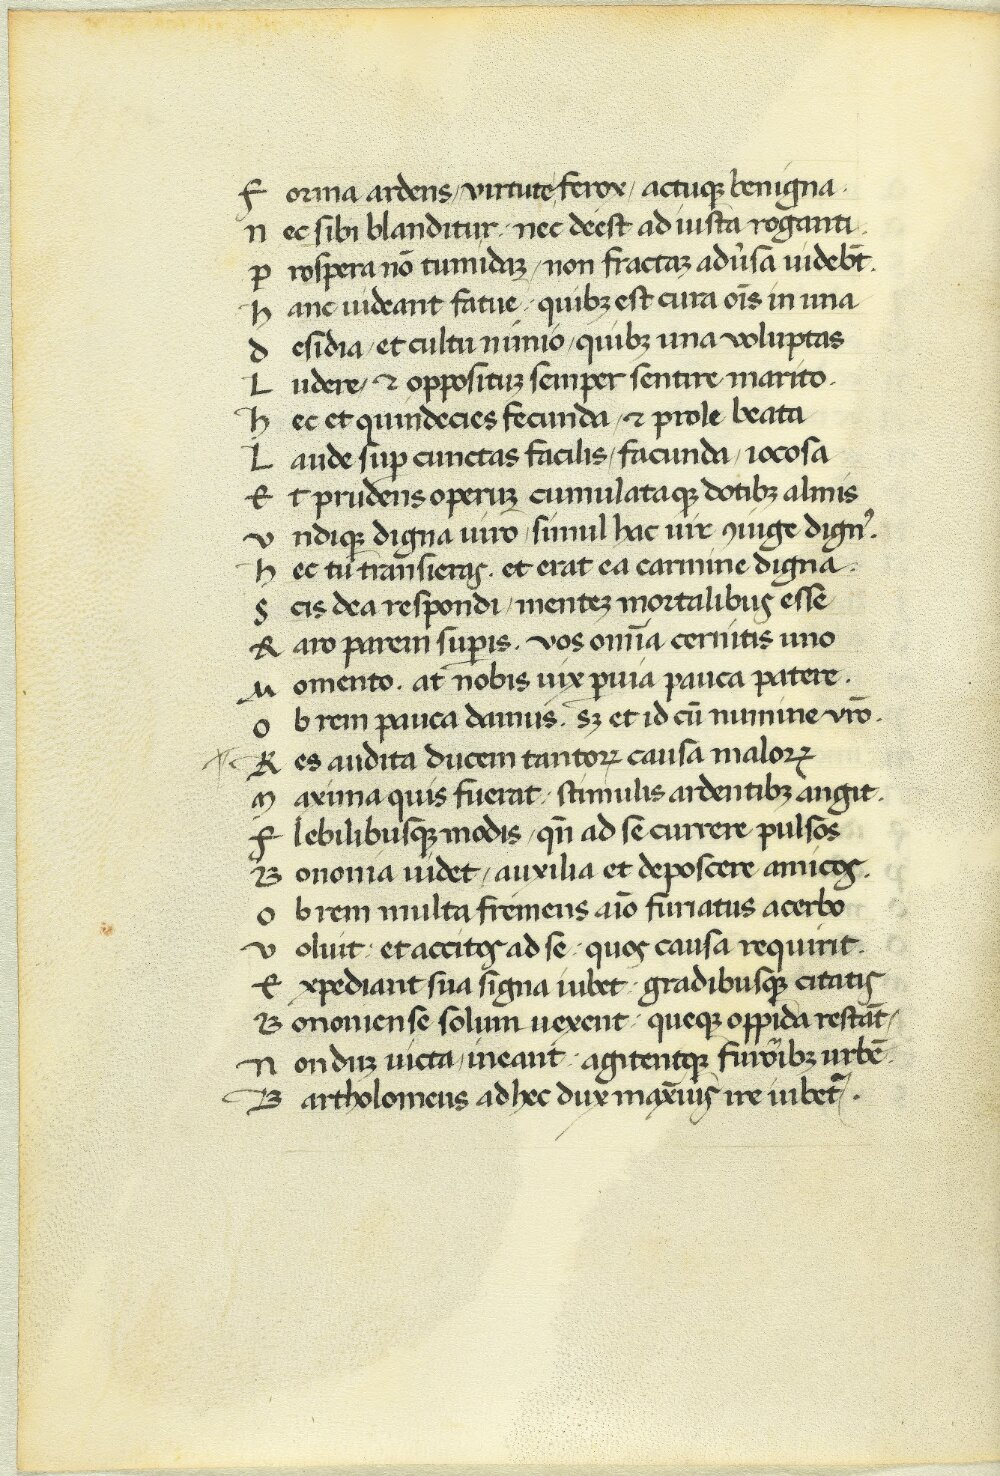 Forma ardens / virtute ferox / actuqꝫ benigna.
nec sibi blanditur. nec deest ad iusta roganti.
prospera nō tumidaꝫ / non fractaꝫ adu̓sā uidebt̄.
hanc uideant fatue. quibꝫ est cura oīs in una
desidia / et cultu nimio / quibꝫ una voluptas
Ludere / ⁊ opposituꝫ semper sentire marito.
hec et quindecies fecunda / ⁊ prole beata
Laude suꝑ cunctas facilis / facunda / iocosa
Et prudens operuꝫ cumulataqꝫ dotibꝫ almis
vndiqꝫ digna uiro / simul hac uir ꝯiuge dignꝰ.
hec tu transieras. et erat ea carmine digna.
scis dea respondi / menteꝫ mortalibus esse
Raro parem suꝑis. vos omīa cernitis uno
Momento. at nobis uix ꝑuia pauca patere.
ob rem pauca damus. sꝫ et id cū numine vrō.
Res audita ducem tantoꝝ causa maloꝝ
Maxima quis fuerat. stimulis ardentibꝫ angit.
Flebilibusqꝫ modis / qn̄ ad se currere pulsos
Bononia uidet / auxilia et deposcere amicos.
ob rem multa fremens aīo furiatus acerbo
voluit. et accitos ad se. quos causa requirit.
Expediant sua signa iubet. gradibusqꝫ citatis
Bononiense solum uexent. queqꝫ oppida restāt /
Non duꝫ uicta / ineant. agitentqꝫ furoribꝫ urbē.
Bartholomeus ad hec dux maxīus ire iubet̄.